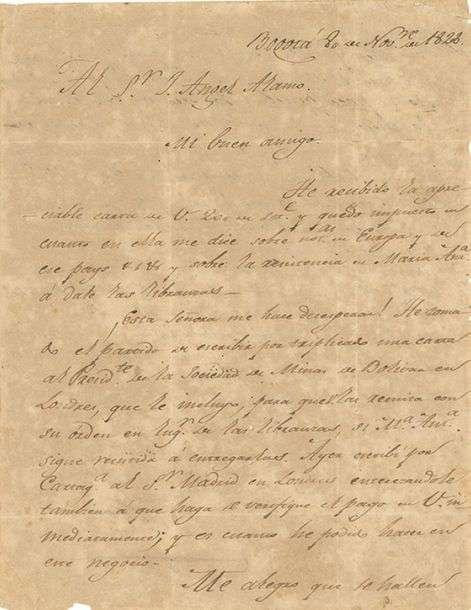 Bogotá 20 de Nov.re de 1828.
Al Sr. J. Angel Alamo.
Mi buen amigo.
He recibido la apre-
ciable carta de V. de y quedo impuesto de
cuanto en ella me dice sobre not.as de Europa y de
ese pago &. &. y sobre la renitencia de Maria Ant.a
á darte las libranzas—
Esta Señora me hace desesperar! He toma-
do el partido de escribir por triplicado una carta
al Presid.te de la Sociedad de Minas de Bolivar en
Londres, que le incluyo, para que las remita con
su orden en lug.r de las libranzas, si M.a Ant.a
sigue renuida á entregarlas. Ayer escribí por
Cartag.a al Sr. Madrid en Londres encareciendole
tambien á que haga se verifique el pago en V. in-
mediatamente; y es cuanto he podido hacer en
este negocio.
Me alegro que se hallen